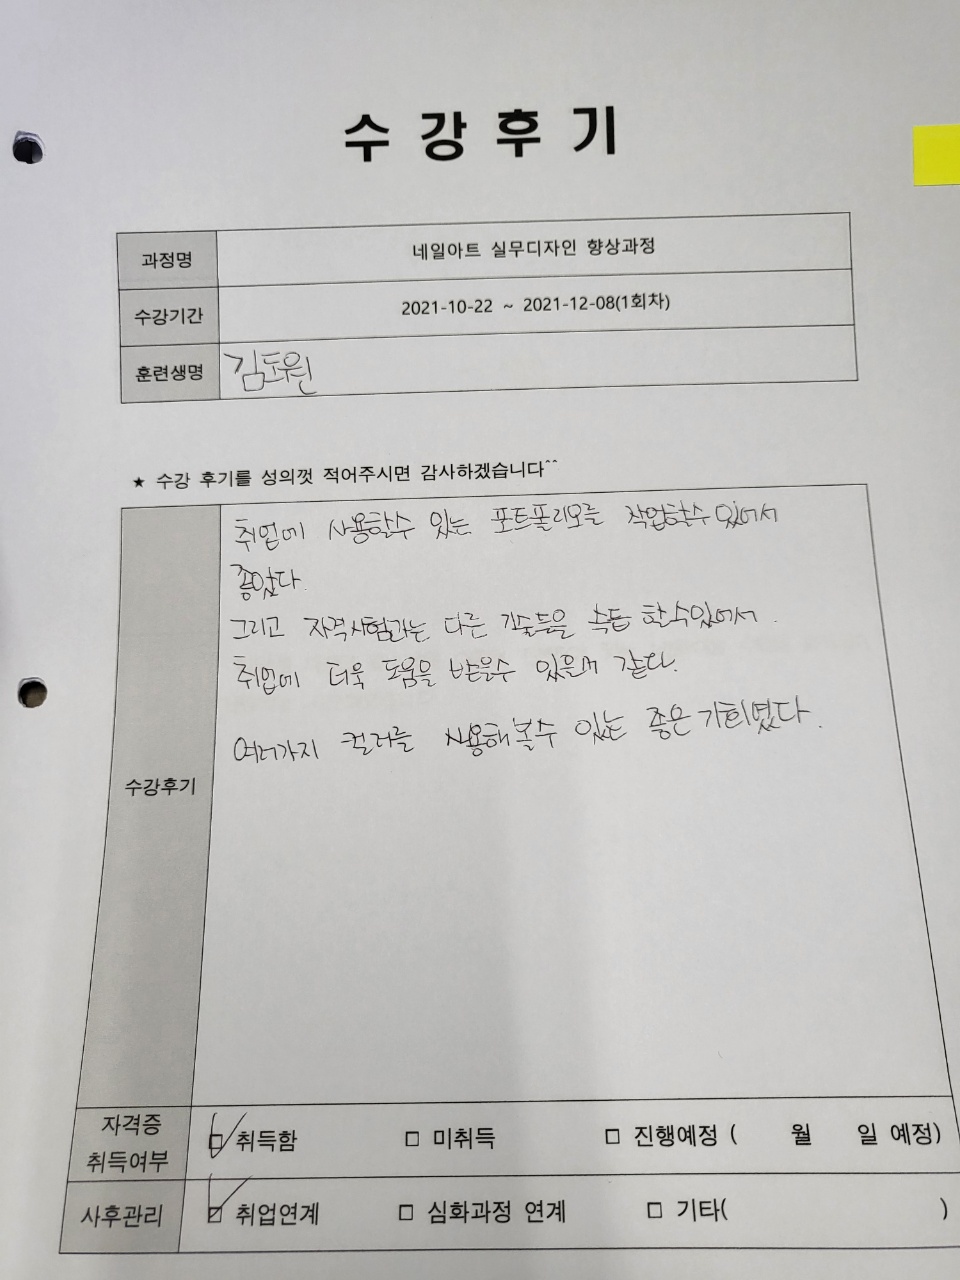 수강후기
과정명 네일아트 실무디자인 향상과정
수강기간 2021-10-22 ~ 2021-12-08(1회차)
훈련생명 김도원
★ 수강 후기를 성의껏 적어주시면 감사하겠습니다^^
취업에 사용할수 있는 포트폴리오를 작업할수있어서
좋았다.
그리고 자격시험과는 다른 기술들을 습득 할수있어서.
취업에 더욱 도움을 받을수 있을꺼 같다.
여러가지 컬러를 사용해볼수 있는 좋은기회였다.
수강후기
자격증 취득여부 ☑ 취득함 □ 미취득 □ 진행예정 ( 월 일 예정)
사후관리 ☑ 취업연계 □ 심화과정 연계 □ 기타( )